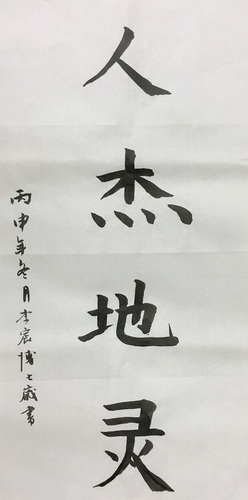 人杰地灵
丙申年冬月李宸博七岁书